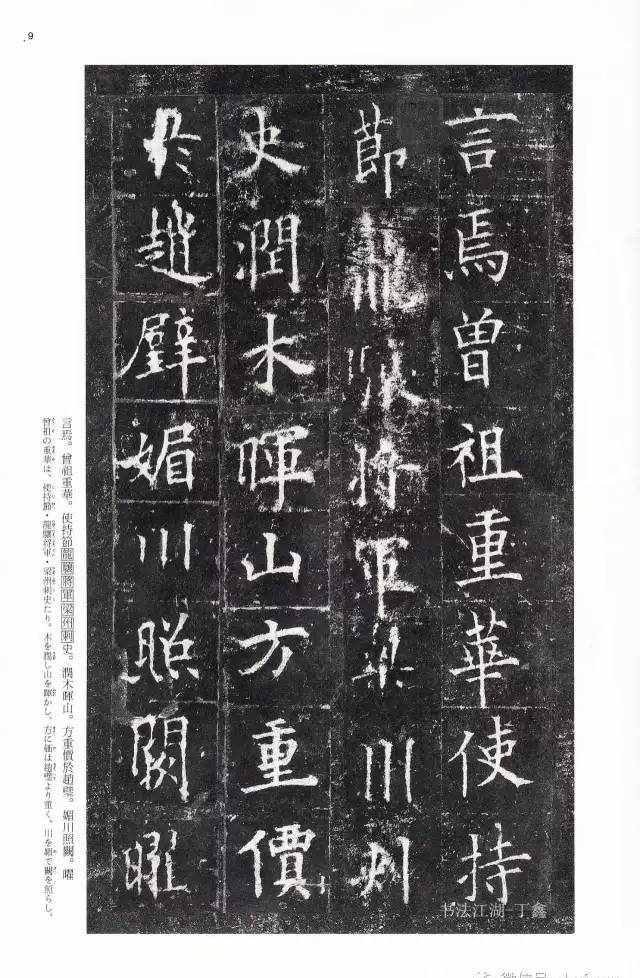 9
言焉曽祖重華使持
節龍驤将軍梁州刾
史潤木暉山方重價
於趙璧媚川照闕曜
言焉。曾祖重華。使持節龍驤將軍梁州刺史。潤木暉山。方重價於趙璧。媚川照闕。曜
曾祖の重華は、使持節・龍驤将軍・梁州刺史たり。木を潤し山を暉かし、方に価は趙璧より重く、川を媚で闕を照らし、
书法江湖-丁鑫